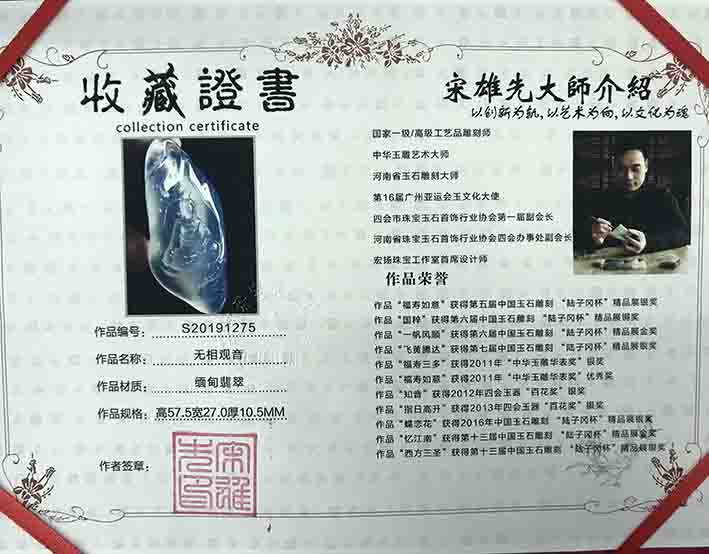 收藏證書
collection certificate
作品编号: S20191275
作品名称: 无相观音
作品材质: 缅甸翡翠
作品规格: 高57.5宽27.0厚10.5MM
作者签章:
宋雄先印
宋雄先大師介紹
以创新为轨,以艺术为向,以文化为魂
国家一级/高级工艺品雕刻师
中华玉雕艺术大师
河南省玉石雕刻大师
第16届广州亚运会玉文化大使
四会市珠宝玉石首饰行业协会第一届副会长
河南省珠宝玉石首饰行业协会四会办事处副会长
宏扬珠宝工作室首席设计师
作品荣誉
作品“福寿如意”获得第五届中国玉石雕刻 “陆子冈杯”精品展银奖
作品“国粹”获得第六届中国玉石雕刻 “陆子冈杯”精品展铜奖
作品“一帆风顺”获得第六届中国玉石雕刻 “陆子冈杯”精品展金奖
作品“飞黄腾达”获得第七届中国玉石雕刻 “陆子冈杯”精品展银奖
作品“福寿三多”获得2011年“中华玉雕华表奖”银奖
作品“福寿如意”获得2011年“中华玉雕华表奖”优秀奖
作品“知音”获得2012年四会玉器“百花奖”银奖
作品“指日高升”获得2013年四会玉器“百花奖”银奖
作品“蝶恋花”获得2016年中国玉石雕刻 “陆子冈杯”精品展银奖
作品“忆江南”获得第十三届中国玉石雕刻 “陆子冈杯”精品展金奖
作品“西方三圣”获得第十三届中国玉石雕刻 “陆子冈杯”精品展银奖